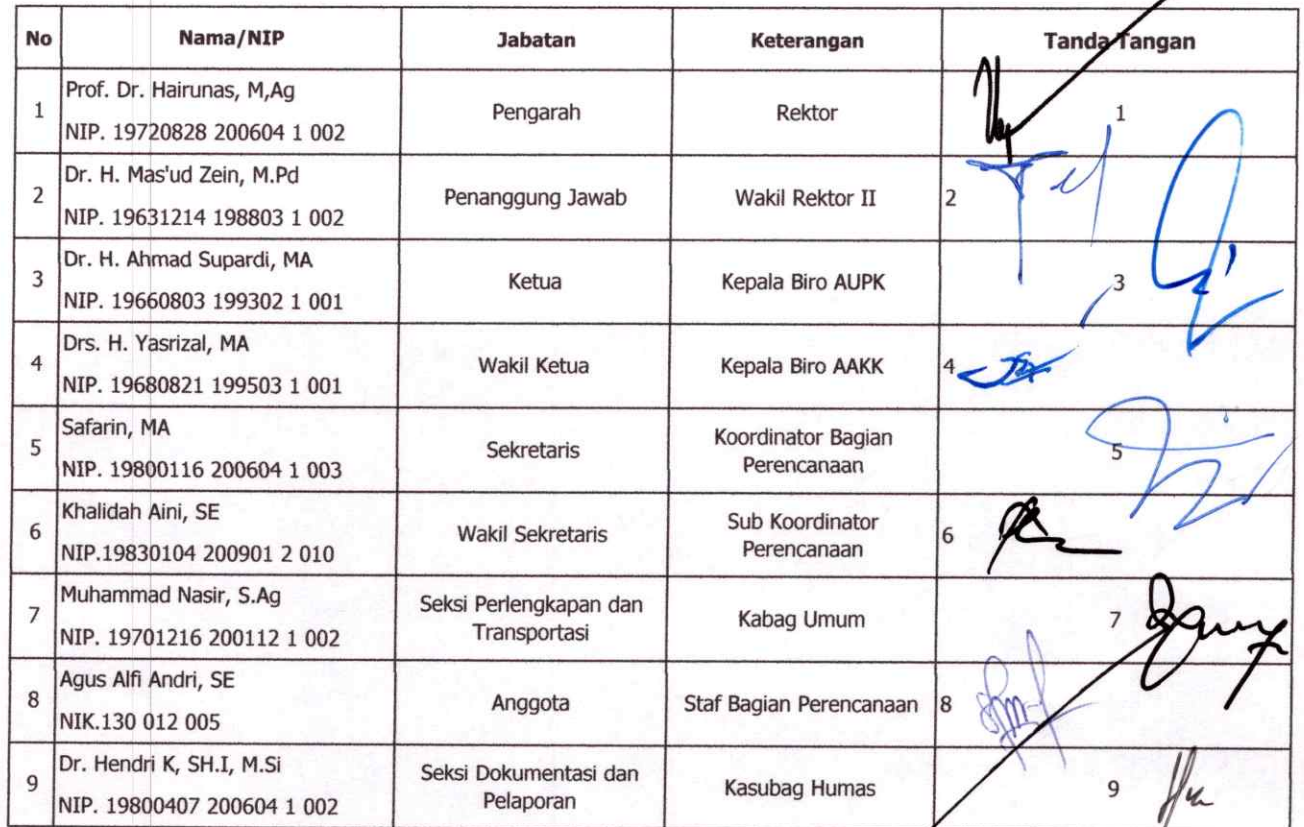 No Nama/NIP Jabatan Keterangan Tanda Tangan
1 Prof. Dr. Hairunas, M,Ag
NIP. 19720828 200604 1 002
Pengarah Rektor 1
2 Dr. H. Mas'ud Zein, M.Pd
NIP. 19631214 198803 1 002
Penanggung Jawab Wakil Rektor II 2
3 Dr. H. Ahmad Supardi, MA
NIP. 19660803 199302 1 001
Ketua Kepala Biro AUPK 3
4 Drs. H. Yasrizal, MA
NIP. 19680821 199503 1 001
Wakil Ketua Kepala Biro AAKK 4
5 Safarin, MA
NIP. 19800116 200604 1 003
Sekretaris Koordinator Bagian
Perencanaan
5
6 Khalidah Aini, SE
NIP.19830104 200901 2 010
Wakil Sekretaris Sub Koordinator
Perencanaan
6
7 Muhammad Nasir, S.Ag
NIP. 19701216 200112 1 002
Seksi Perlengkapan dan
Transportasi
Kabag Umum 7
8 Agus Alfi Andri, SE
NIK.130 012 005
Anggota Staf Bagian Perencanaan 8
9 Dr. Hendri K, SH.I, M.Si
NIP. 19800407 200604 1 002
Seksi Dokumentasi dan
Pelaporan
Kasubag Humas 9